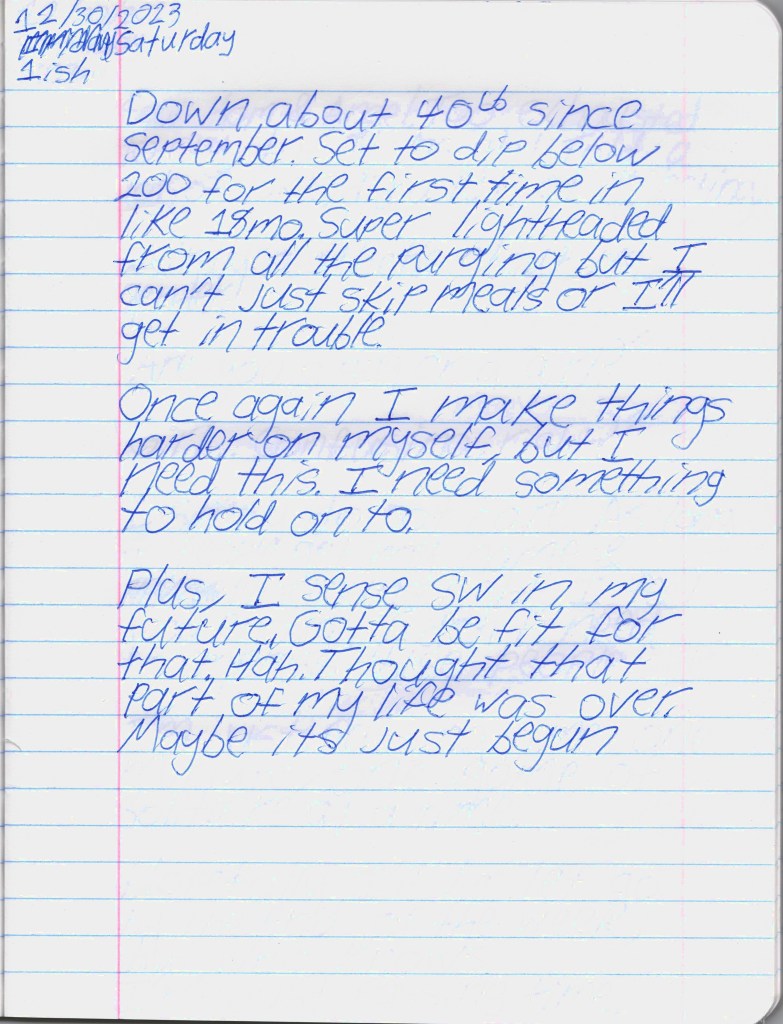 12/30/2023
Saturday
1ish
Down about 40lb since
September. Set to dip below
200 for the first time in
like 18mo. Super lightheaded
from all the purging but I
can't just skip meals or I'll
get in trouble.
Once again I make things
harder on myself, but I
need this. I need something
to hold on to.
Plus, I sense SW in my
future. Gotta be fit for
that. Hah. Thought that
part of my life was over.
Maybe its just begun